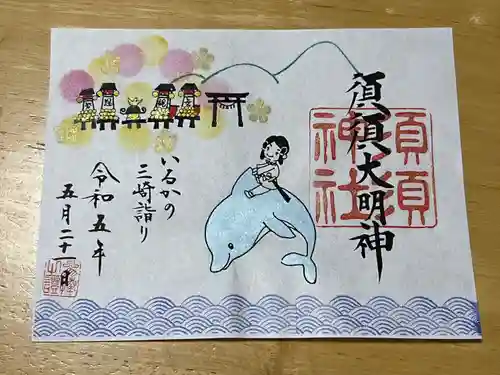 須須大明神
須須
神社
いるかの
三崎詣り
令和五年
五月二十一日